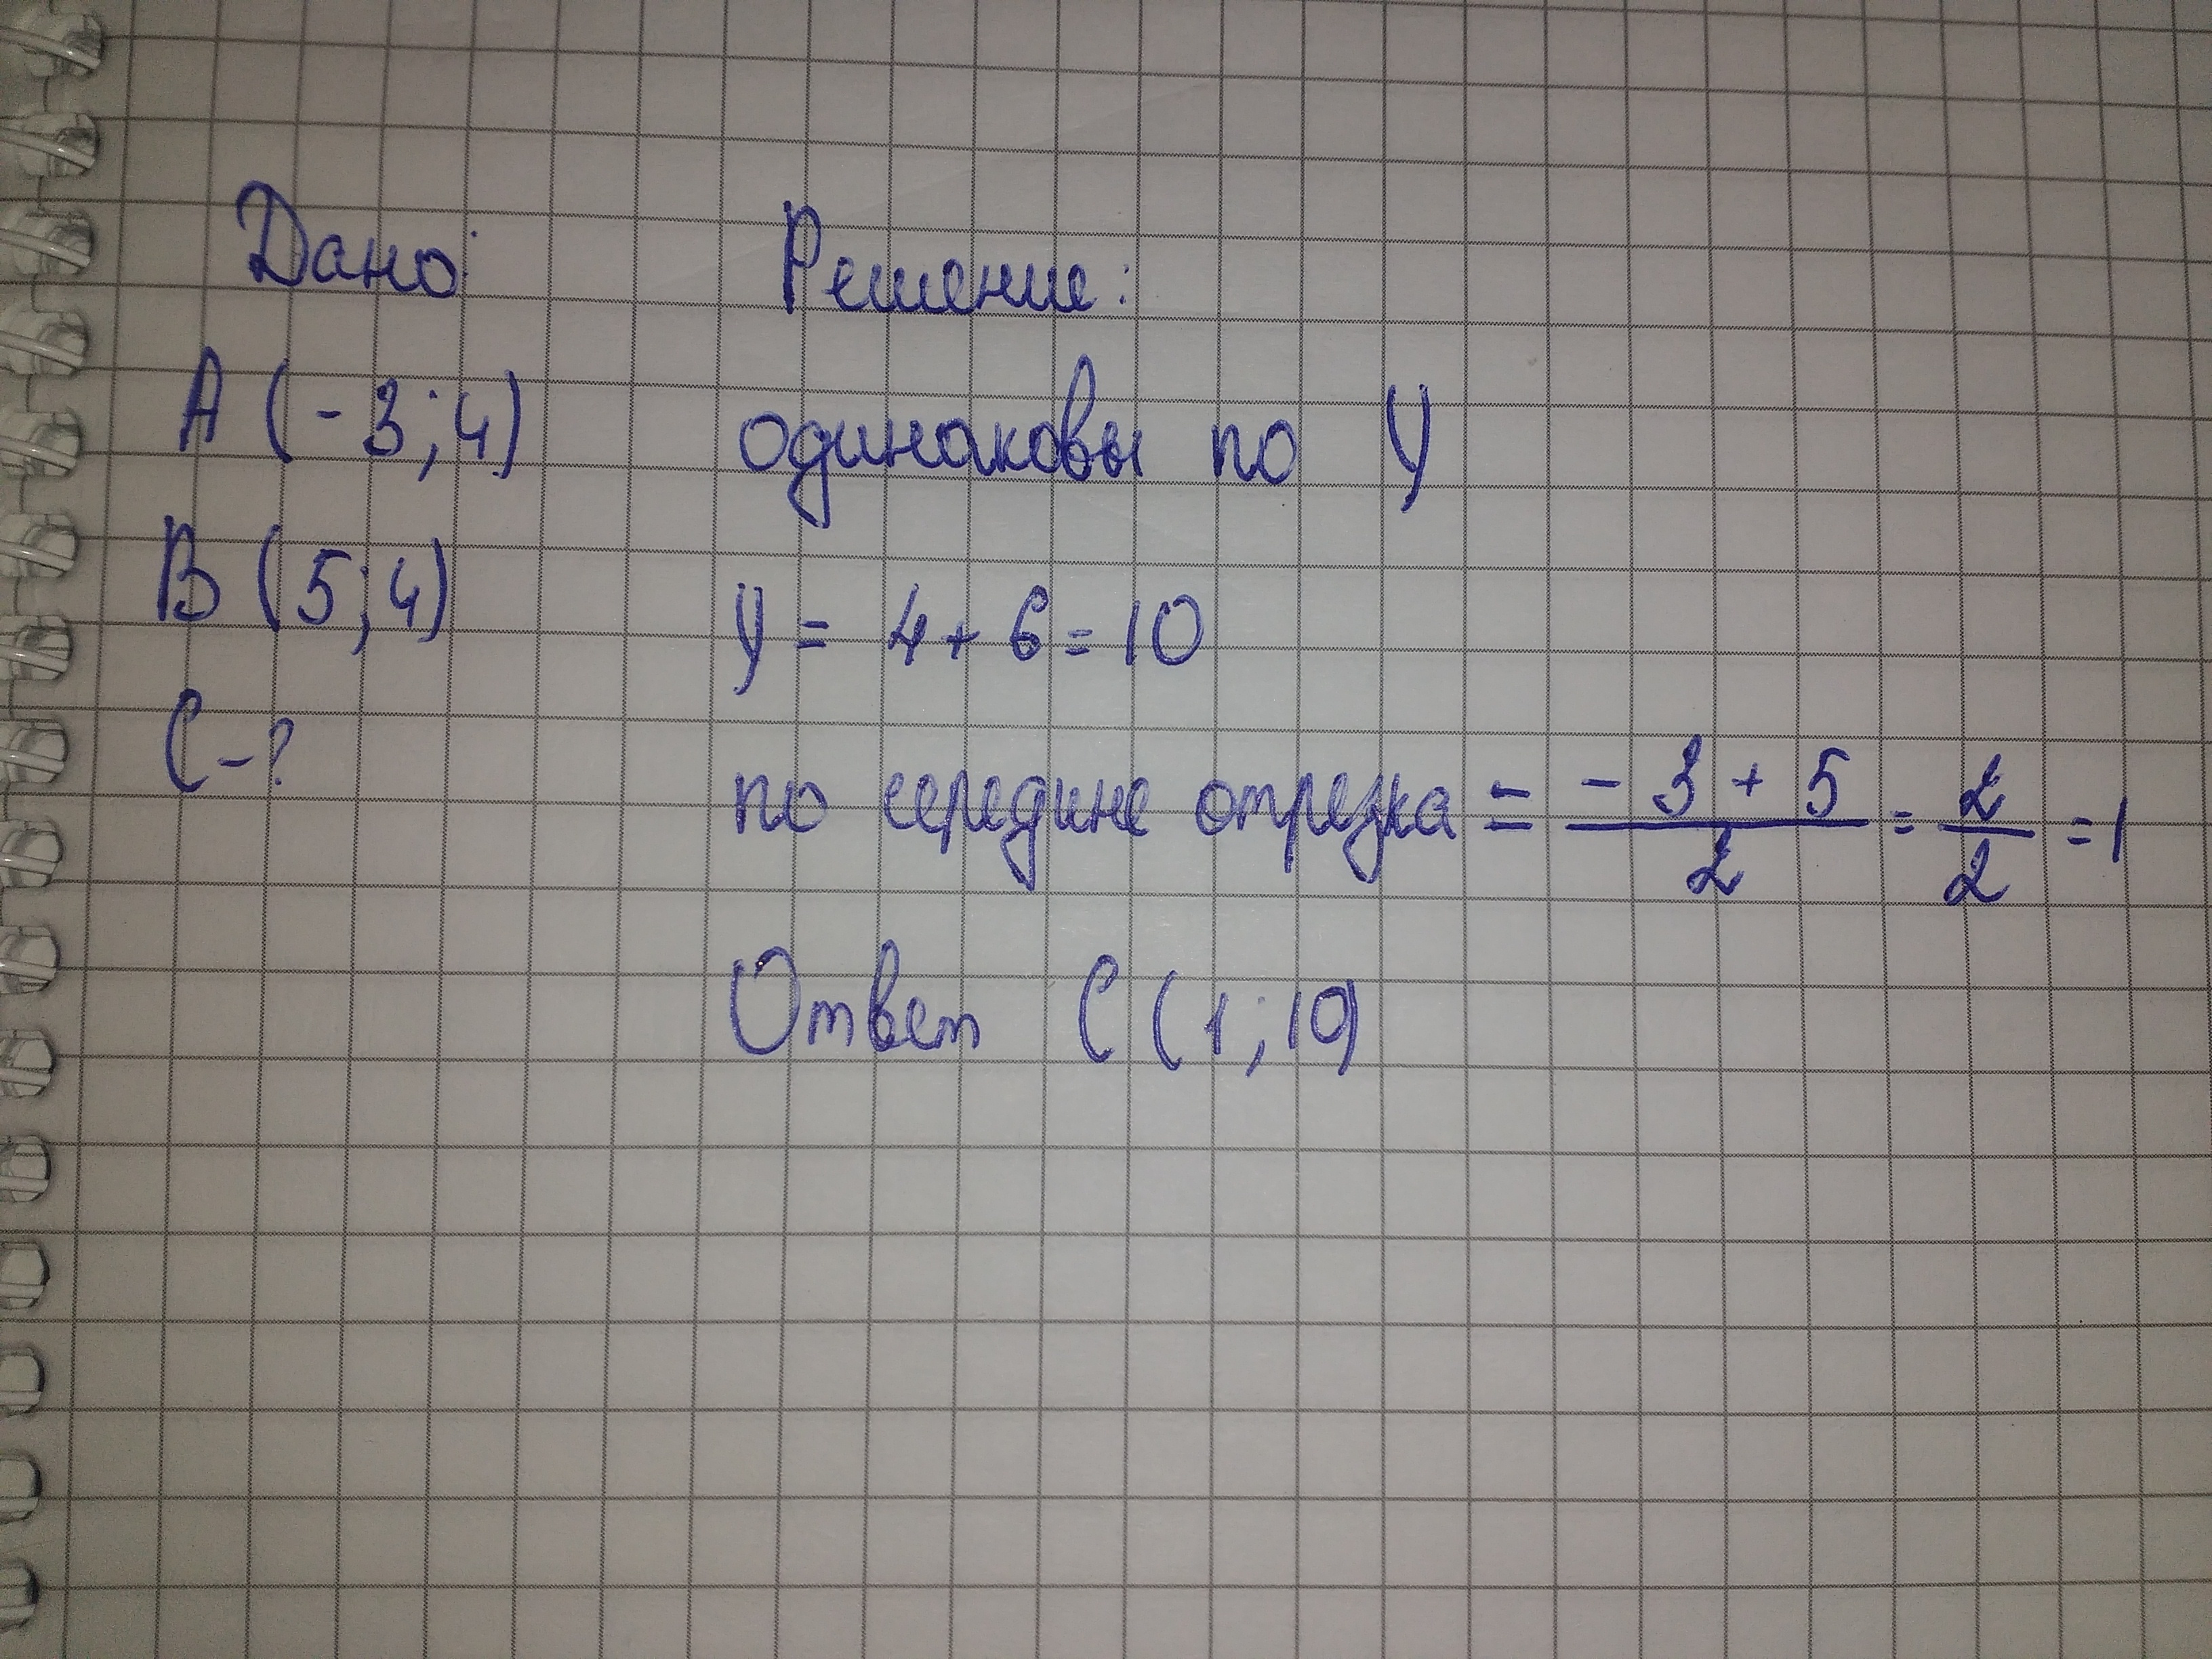 Дано:
Решение:
А (-3;4)
одинаковы по У
В (5;4)
У = 4+ 6 = 10
С-?
по середине отрезка = -3 + 5 / 2 = 2 / 2 = 1
Ответ С (1;10)